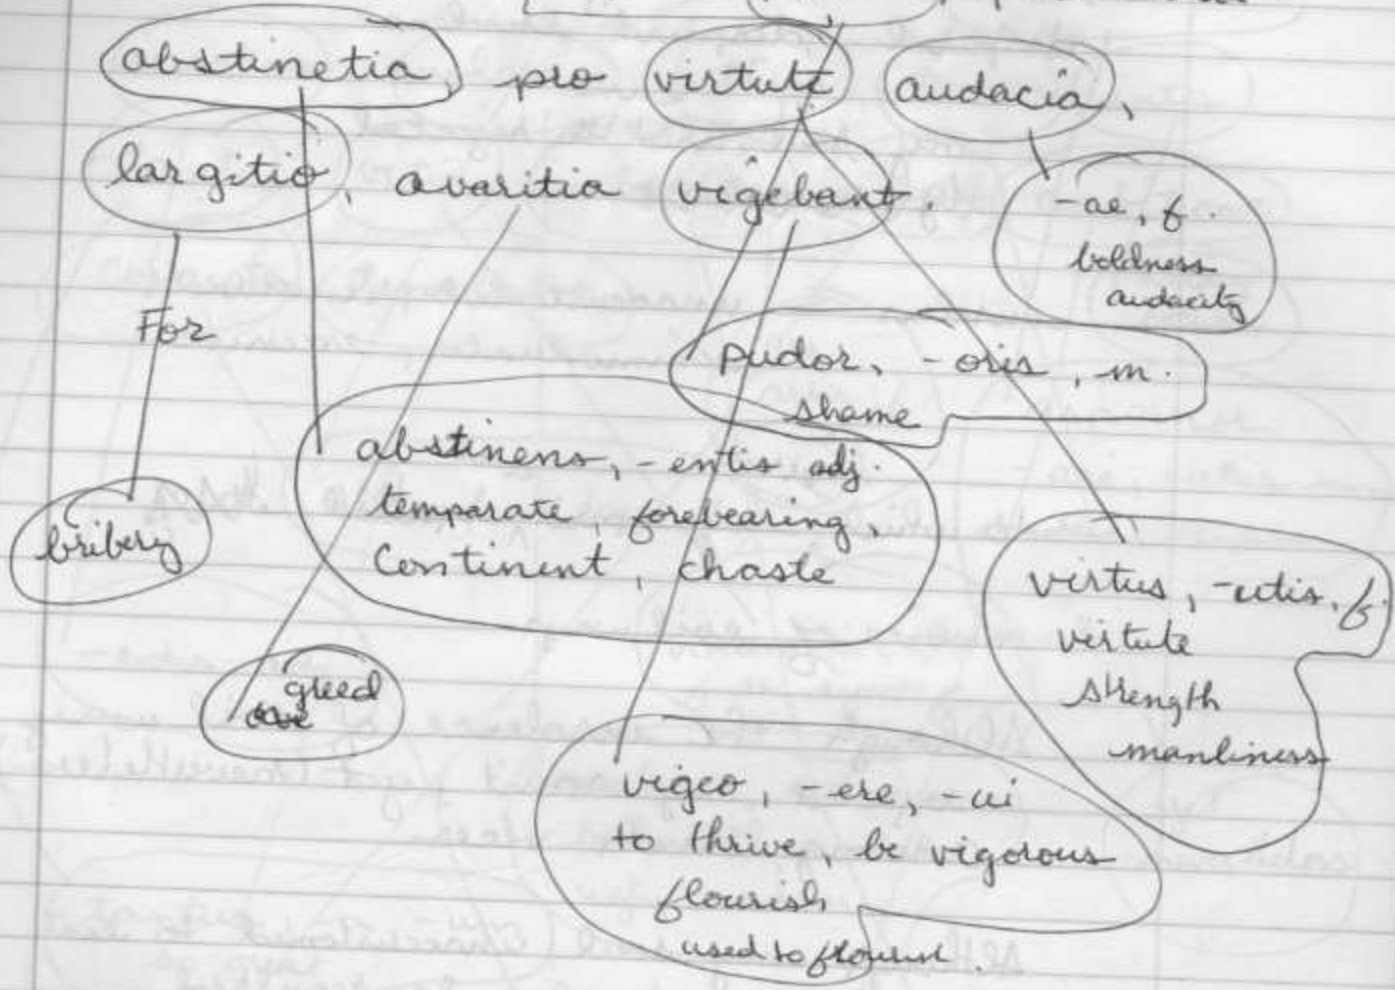 abstinetia, pro virtute audacia,
largitio, avaritia vigebant.
-ae, f.
boldness
audacity
For
pudor, -oris, m.
shame
abstinens, -entis adj.
temparate, forebearing,
continent, chaste
bribery
virtus, -utis, f.
virtute
strength
manliness
greed
vigeo, -ere, -ui
to thrive, be vigorous
flourish
used to flourish.